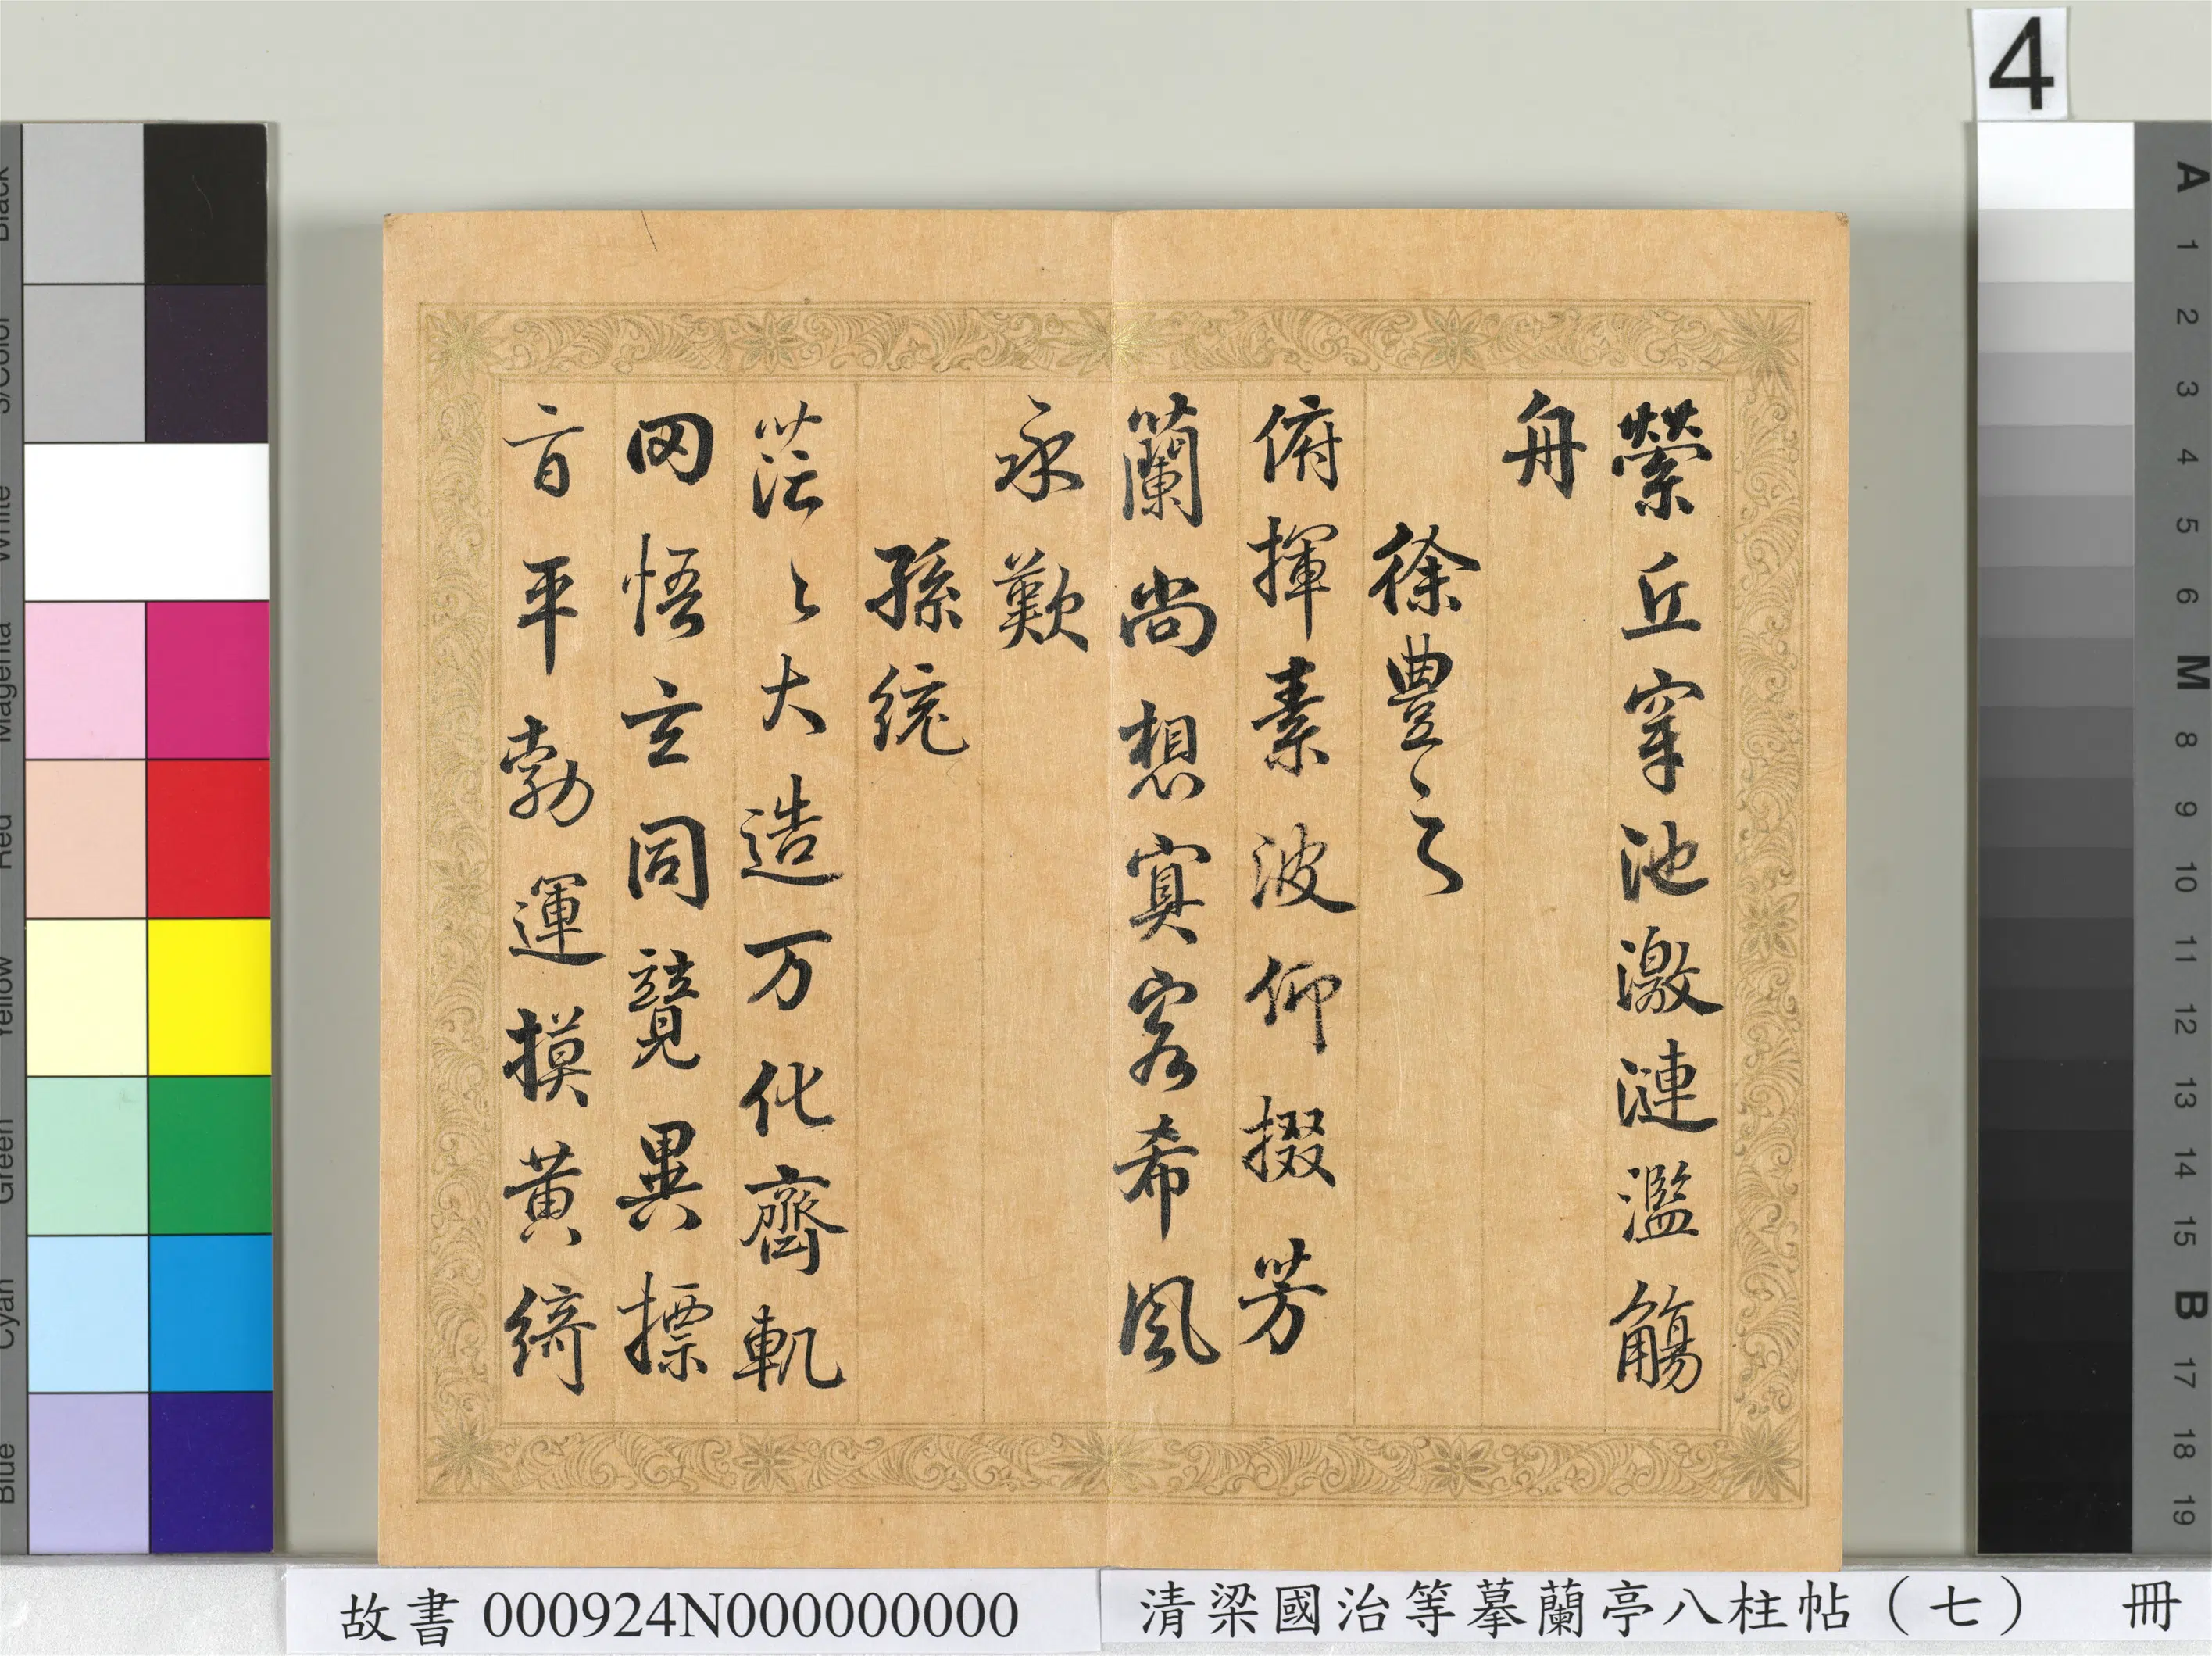 縈丘穿池激漣濫觴
舟
徐豊之
俯揮素波仰掇芳
蘭尚想寘客希風
永歎
孫統
茫〻大造万化齊軌
罔悟玄同競異摽
旨平勃運摸黄綺
4
A 1 2 3 4 5 6 M 8 9 10 11 12 13 14 15 B 17 18 19
Black
3/Color
White
Magenta
Red
Yellow
Green
Cyan
Blue
故書 000924N000000000
清梁國治等摹蘭亭八柱帖（七） 冊